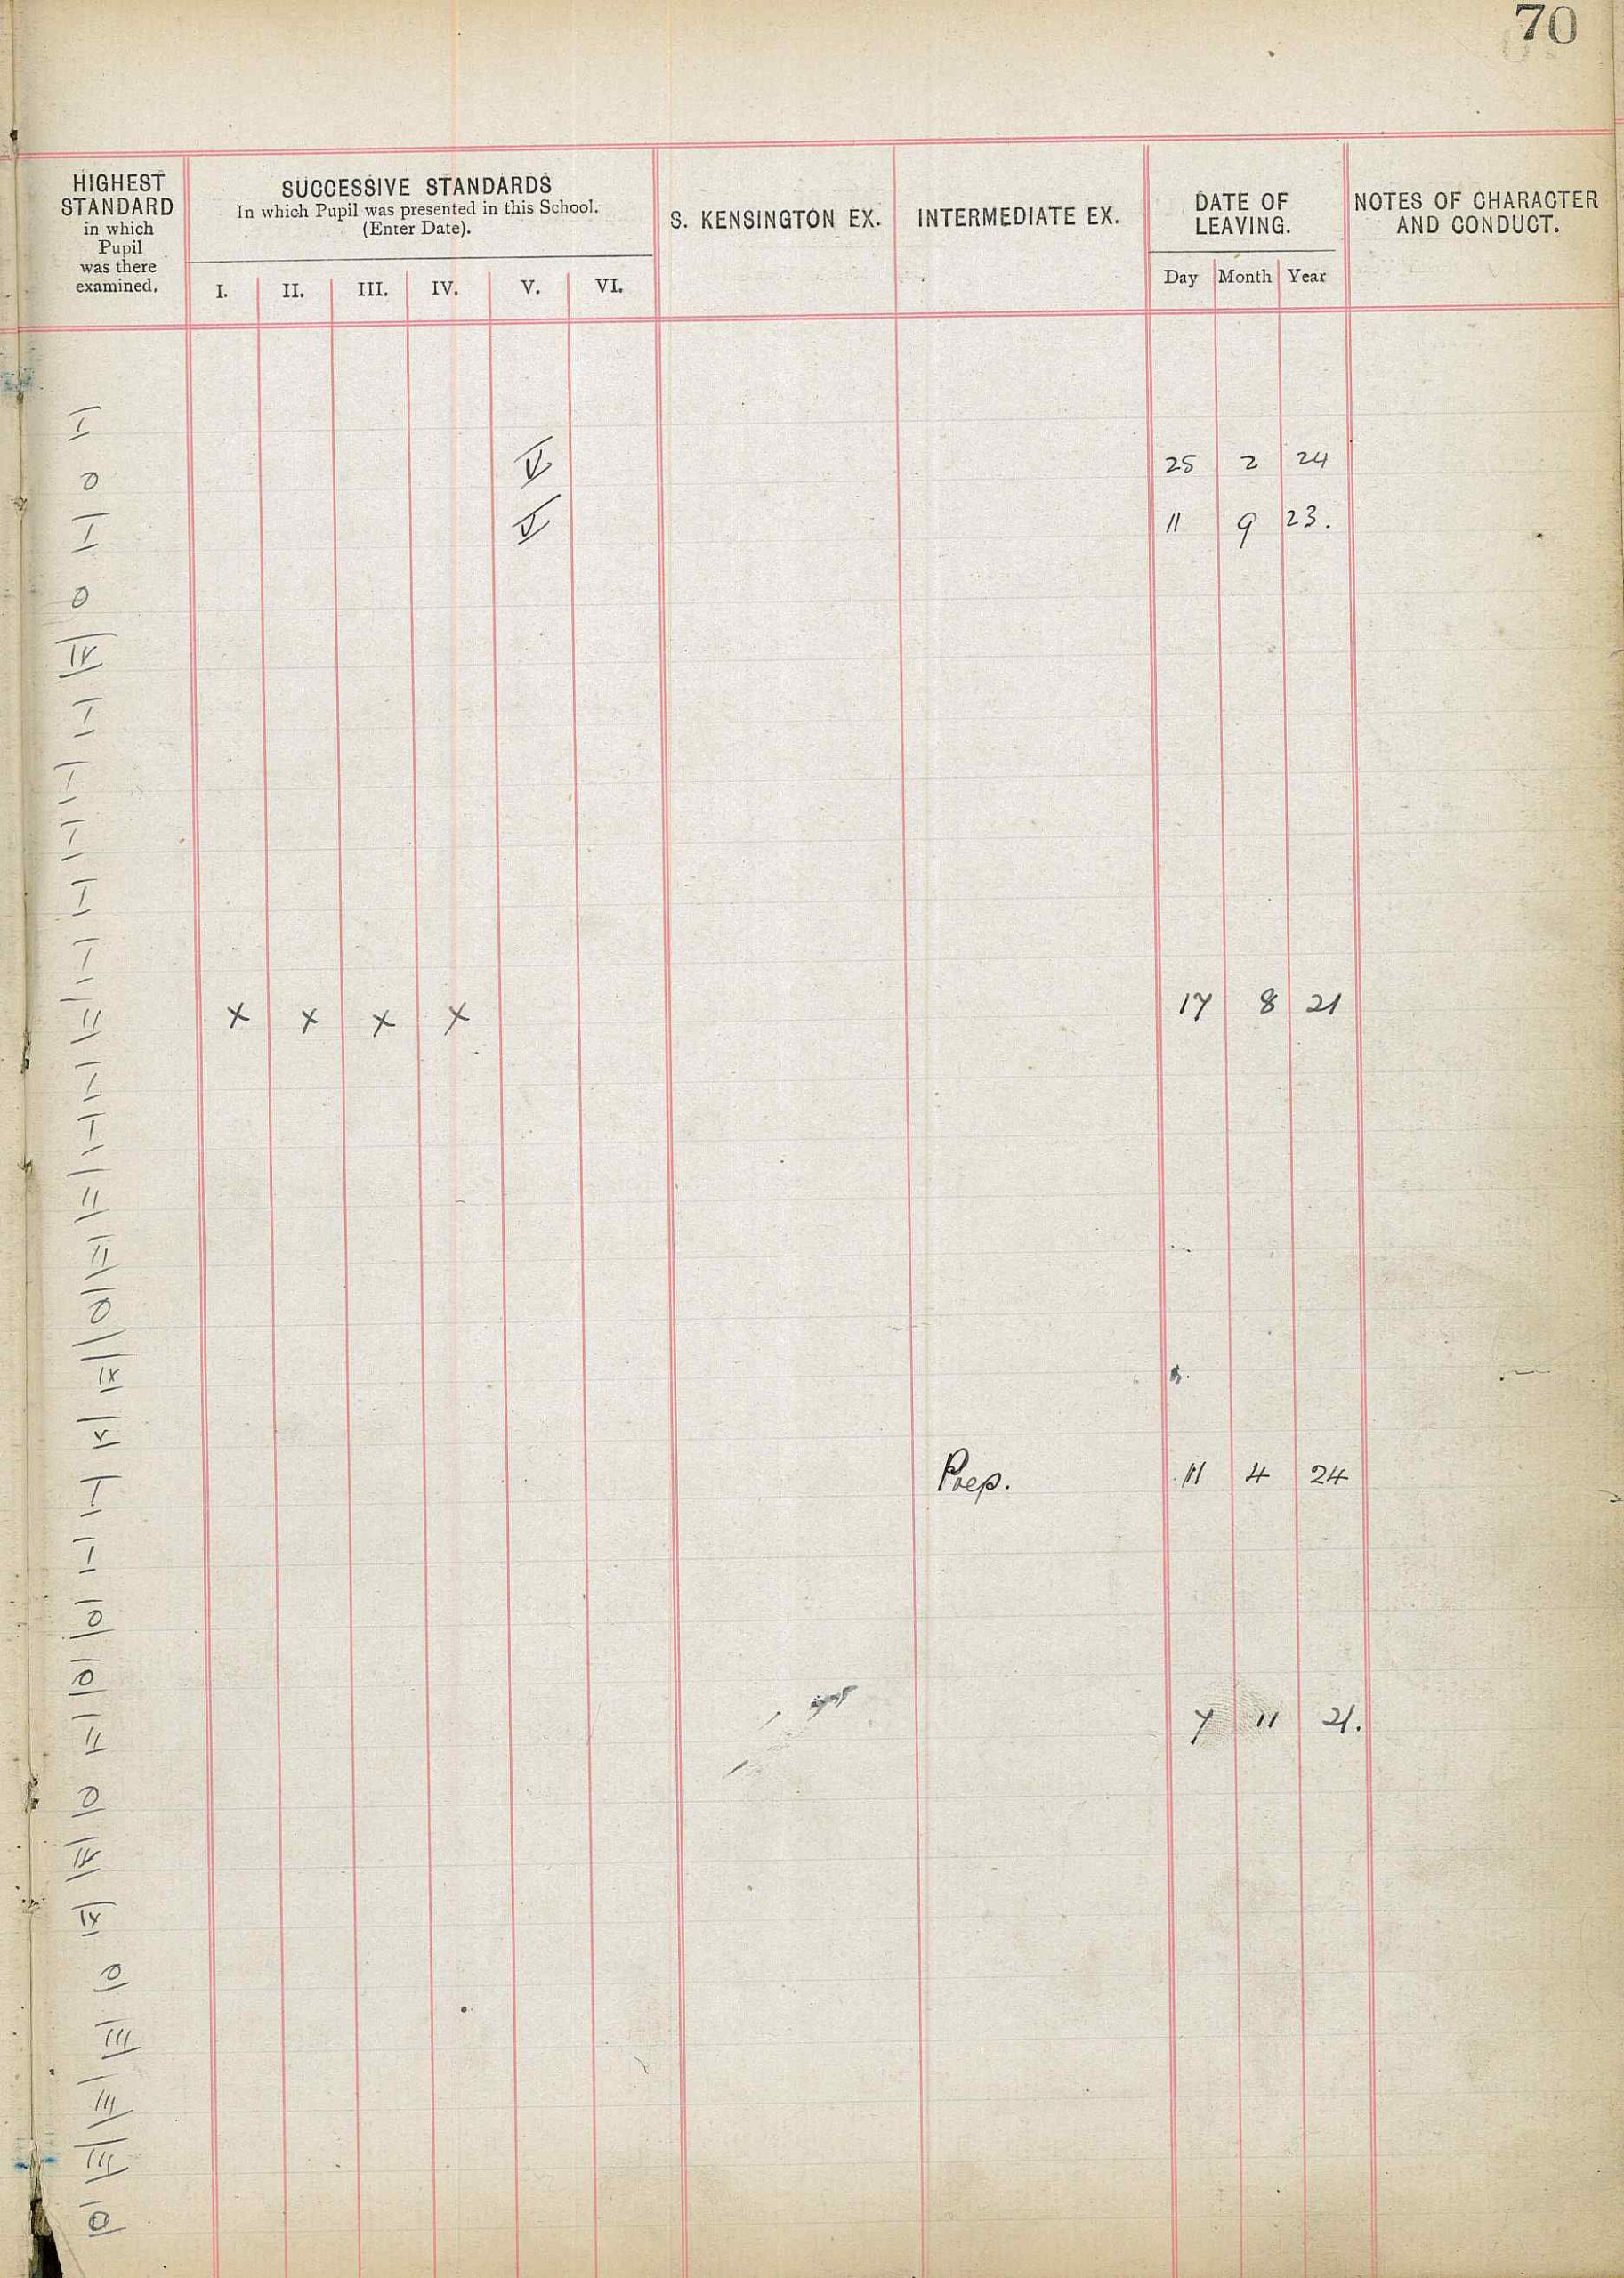 70
HIGHEST STANDARD in which Pupil was there examined.
SUCCESSIVE STANDARDS
In which Pupil was presented in this School.
(Enter Date).
I. II. III. IV. V. VI.
S. KENSINGTON EX.
INTERMEDIATE EX.
DATE OF LEAVING.
Day Month Year
NOTES OF CHARACTER AND CONDUCT.
I
0 V 25 2 24
I V 11 9 23.
0
IV
I
I
I
I
I
II x x x x 17 8 21
I
I
II
II
0
IX
V
I Prep. 11 4 24
I
0
0
II 7 11 21.
0
IV
IX
0
III
III
III
0